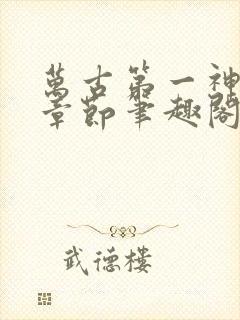 萬古第一神
章節筆趣閣
武德樓